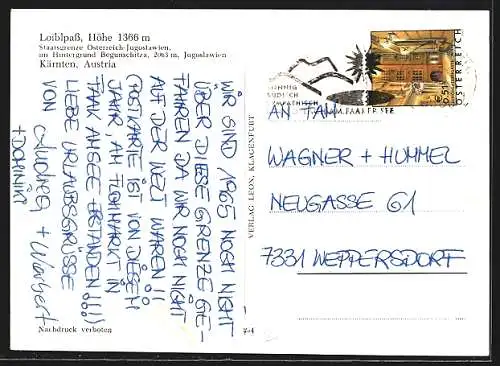 Loiblpaß, Höhe 1366 m
Staatsgrenze Österreich-Jugoslawien,
im Hintergrund Begunschitza, 2063 m, Jugoslawien
Kärnten, Austria
WIR SIND 1965 NOCH NICHT
ÜBER DIESE GRENZE GE-
FAHREN DA WIR NOCH NICHT
AUF DER WELT WAREN!!
(POSTKARTE IST VON DIESEM
JAHR, AM FLOHMARKT IN
FAAK AM SEE ERSTANDEN!!!)
LIEBE URLAUBSGRÜSSE
VON
+ DOMINIK
Nachdruck verboten
VERLAG LEON, KLAGENFURT
7-4
SONNIG
SÜDLICH
SYMPATHISCH
AM FAAKER SEE
0.51
ÖSTERREICH
AN FAM.
WAGNER + HUMMEL
NEUGASSE 61
7331 WEPPERSDORF